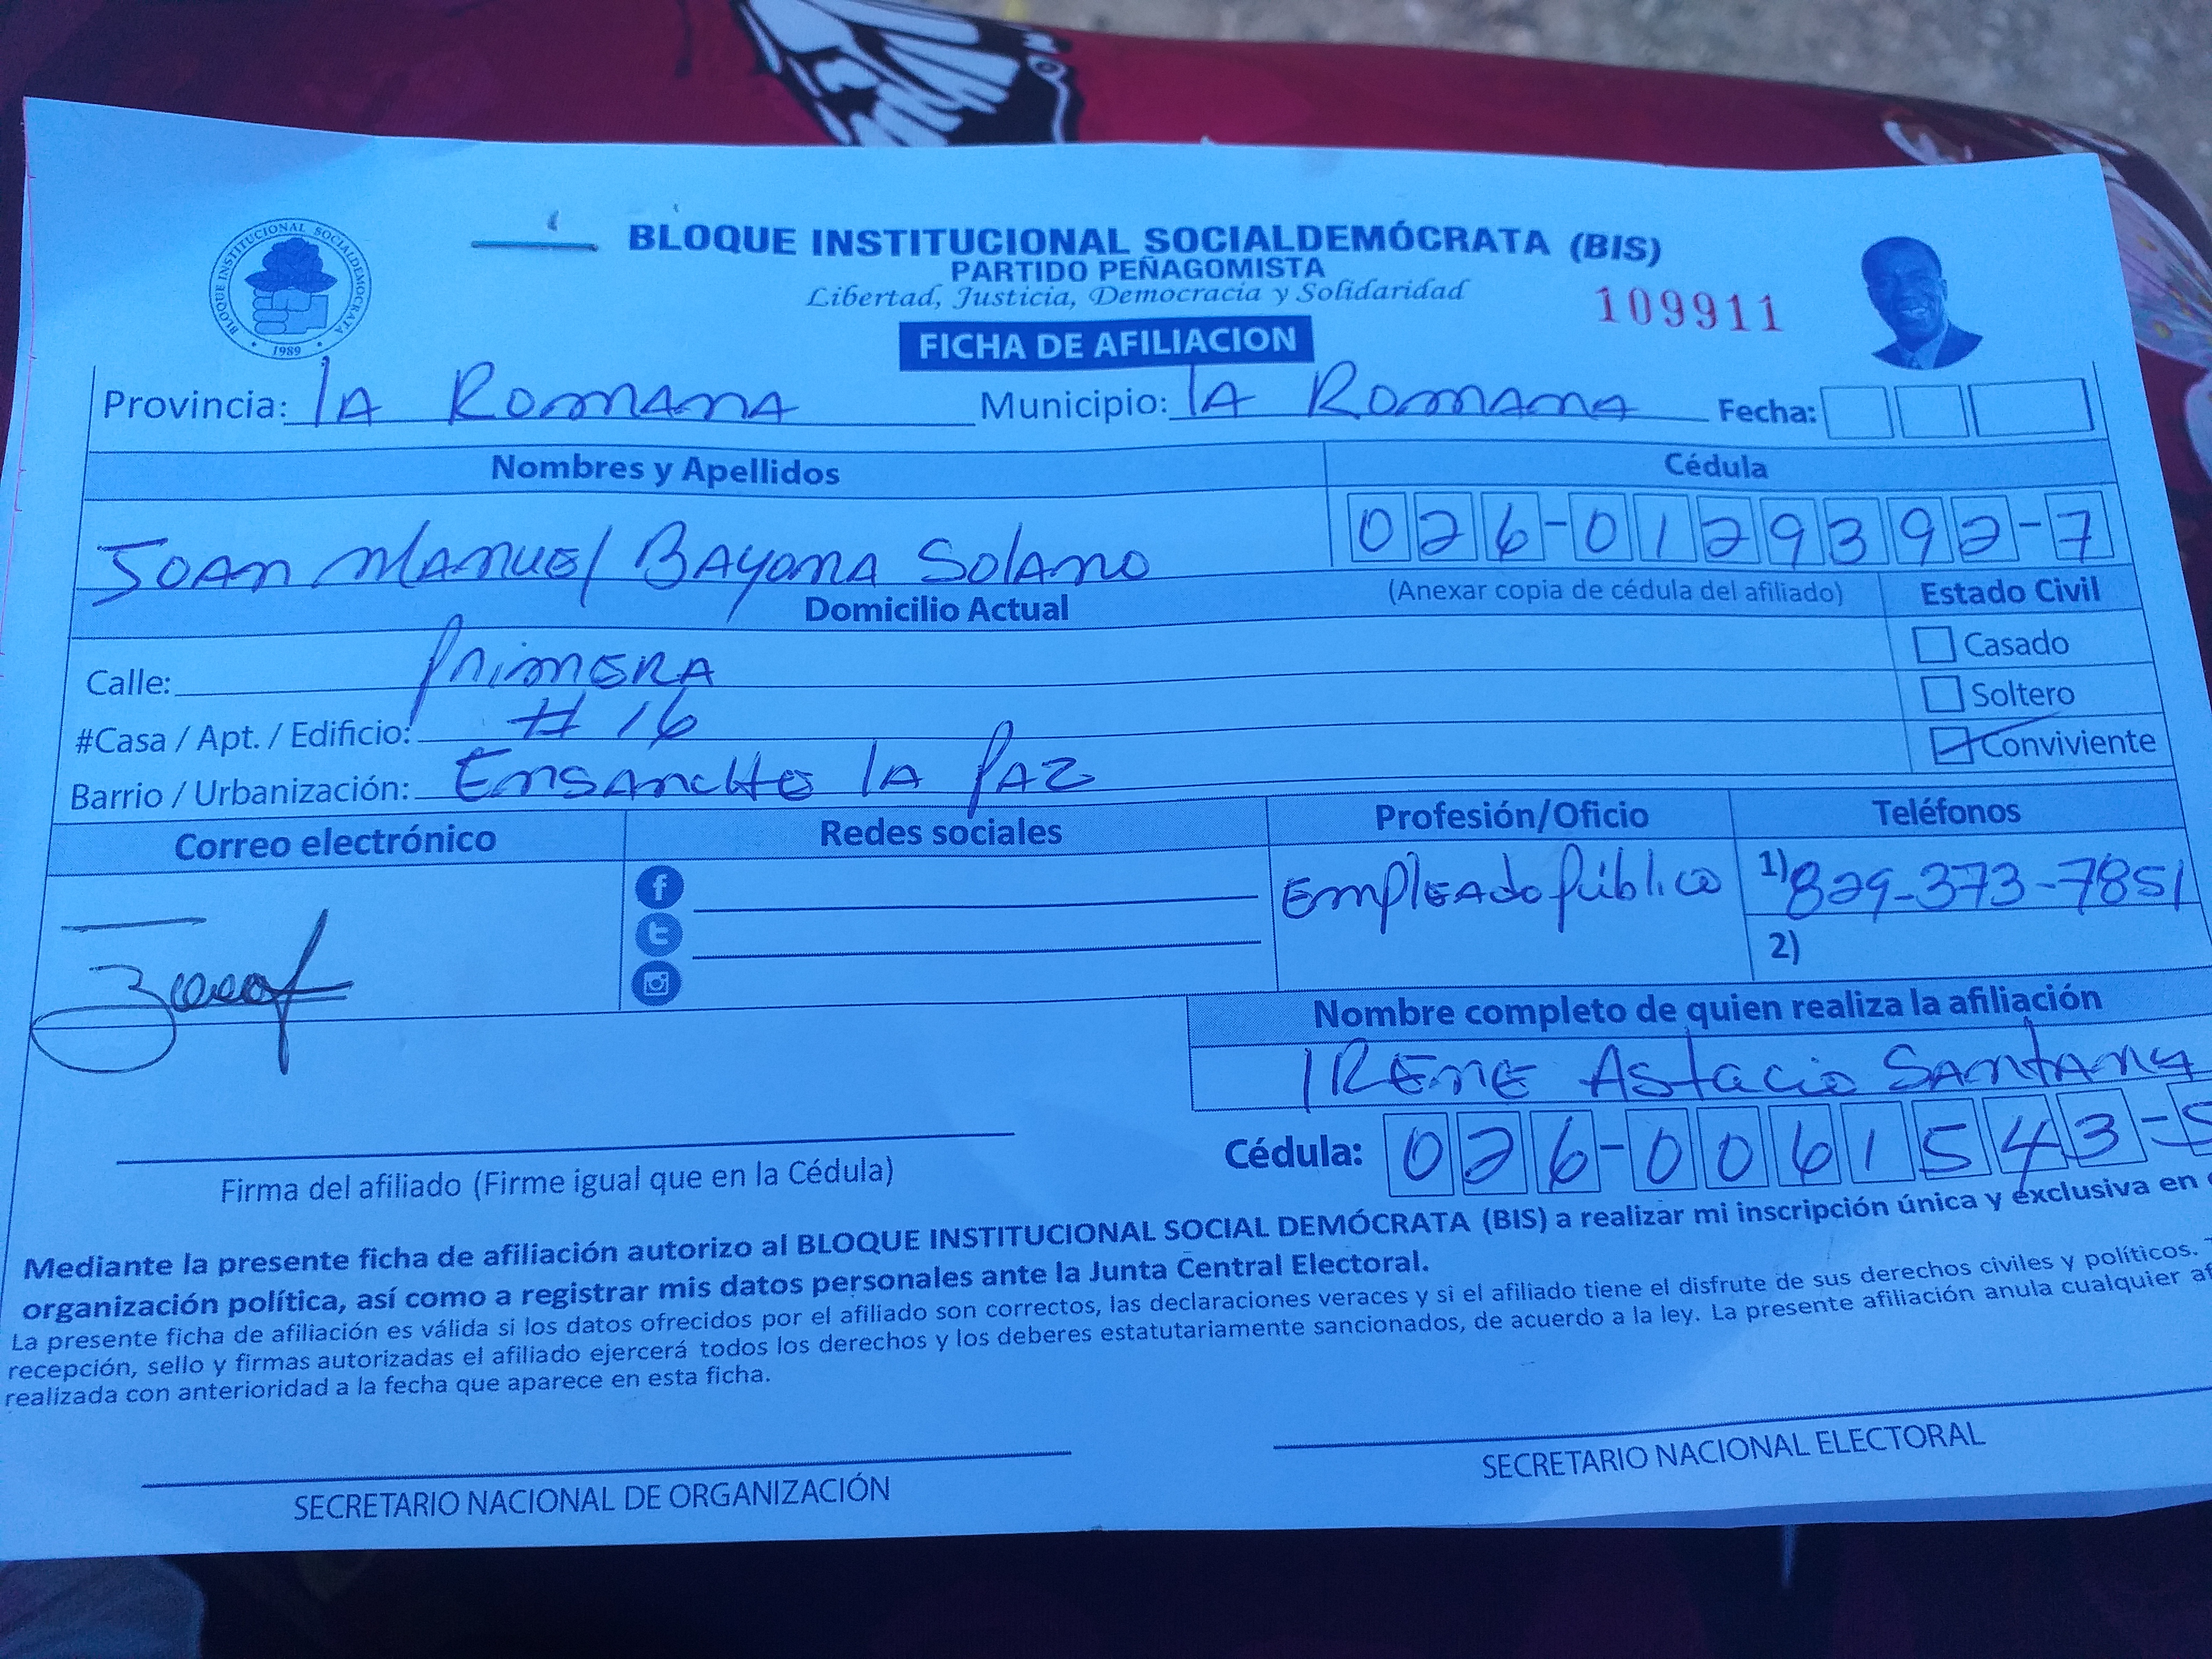 BLOQUE INSTITUCIONAL SOCIALDEMÓCRATA (BIS)
PARTIDO PEÑAGOMISTA
Libertad, Justicia, Democracia y Solidaridad
109911
BLOQUE INSTITUCIONAL SOCIALDEMOCRATA
1989
FICHA DE AFILIACION
Provincia: lA RomAnA Municipio: lA RomAnA Fecha:
Nombres y Apellidos Cédula
JOAn mAnuel BAyonA SolAno 026-0129392-7
Domicilio Actual (Anexar copia de cédula del afiliado) Estado Civil
Calle: PRimeRA Casado
#Casa / Apt. / Edificio: # 16 Soltero
Barrio / Urbanización: EnsAncHe lA PAz Conviviente
Correo electrónico Redes sociales Profesión/Oficio Teléfonos
EmpleAdo Público 1) 829-373-7851
2)
Nombre completo de quien realiza la afiliación
IRENE Astacio SAntAnA
Cédula: 026-0061543-5
Firma del afiliado (Firme igual que en la Cédula)
Mediante la presente ficha de afiliación autorizo al BLOQUE INSTITUCIONAL SOCIAL DEMÓCRATA (BIS) a realizar mi inscripción única y exclusiva en
organización política, así como a registrar mis datos personales ante la Junta Central Electoral.
La presente ficha de afiliación es válida si los datos ofrecidos por el afiliado son correctos, las declaraciones veraces y si el afiliado tiene el disfrute de sus derechos civiles y políticos.
recepción, sello y firmas autorizadas el afiliado ejercerá todos los derechos y los deberes estatutariamente sancionados, de acuerdo a la ley. La presente afiliación anula cualquier
realizada con anterioridad a la fecha que aparece en esta ficha.
SECRETARIO NACIONAL DE ORGANIZACIÓN SECRETARIO NACIONAL ELECTORAL